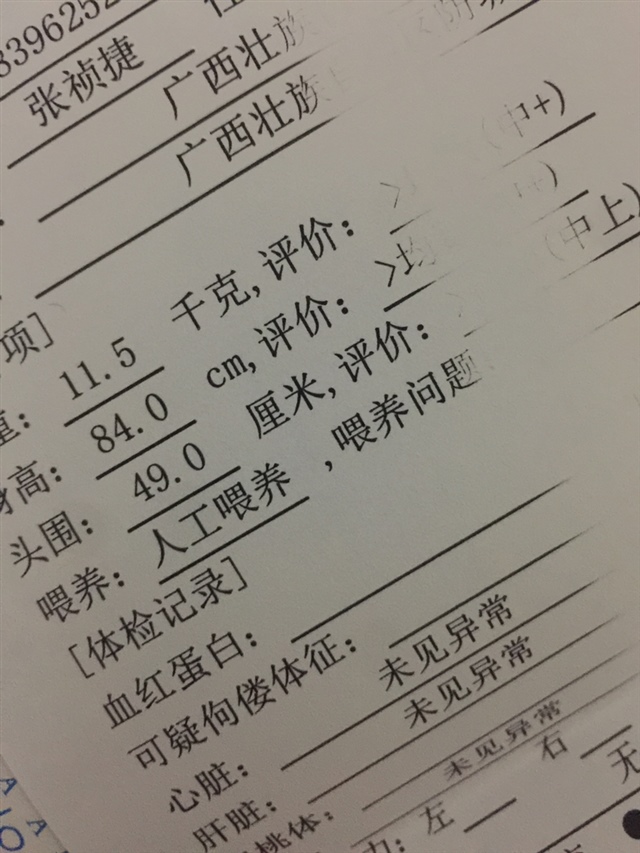 8396252
张祯捷
广西壮族
广西壮族
项]
重: 11.5 千克,评价: > (中+)
身高: 84.0 cm,评价: >均
头围: 49.0 厘米,评价: (中上)
喂养: 人工喂养 ,喂养问题
[体检记录]
血红蛋白:
可疑佝偻体征: 未见异常
心脏: 未见异常
肝脏: 未见异常
桃体: 右
力: 左 无